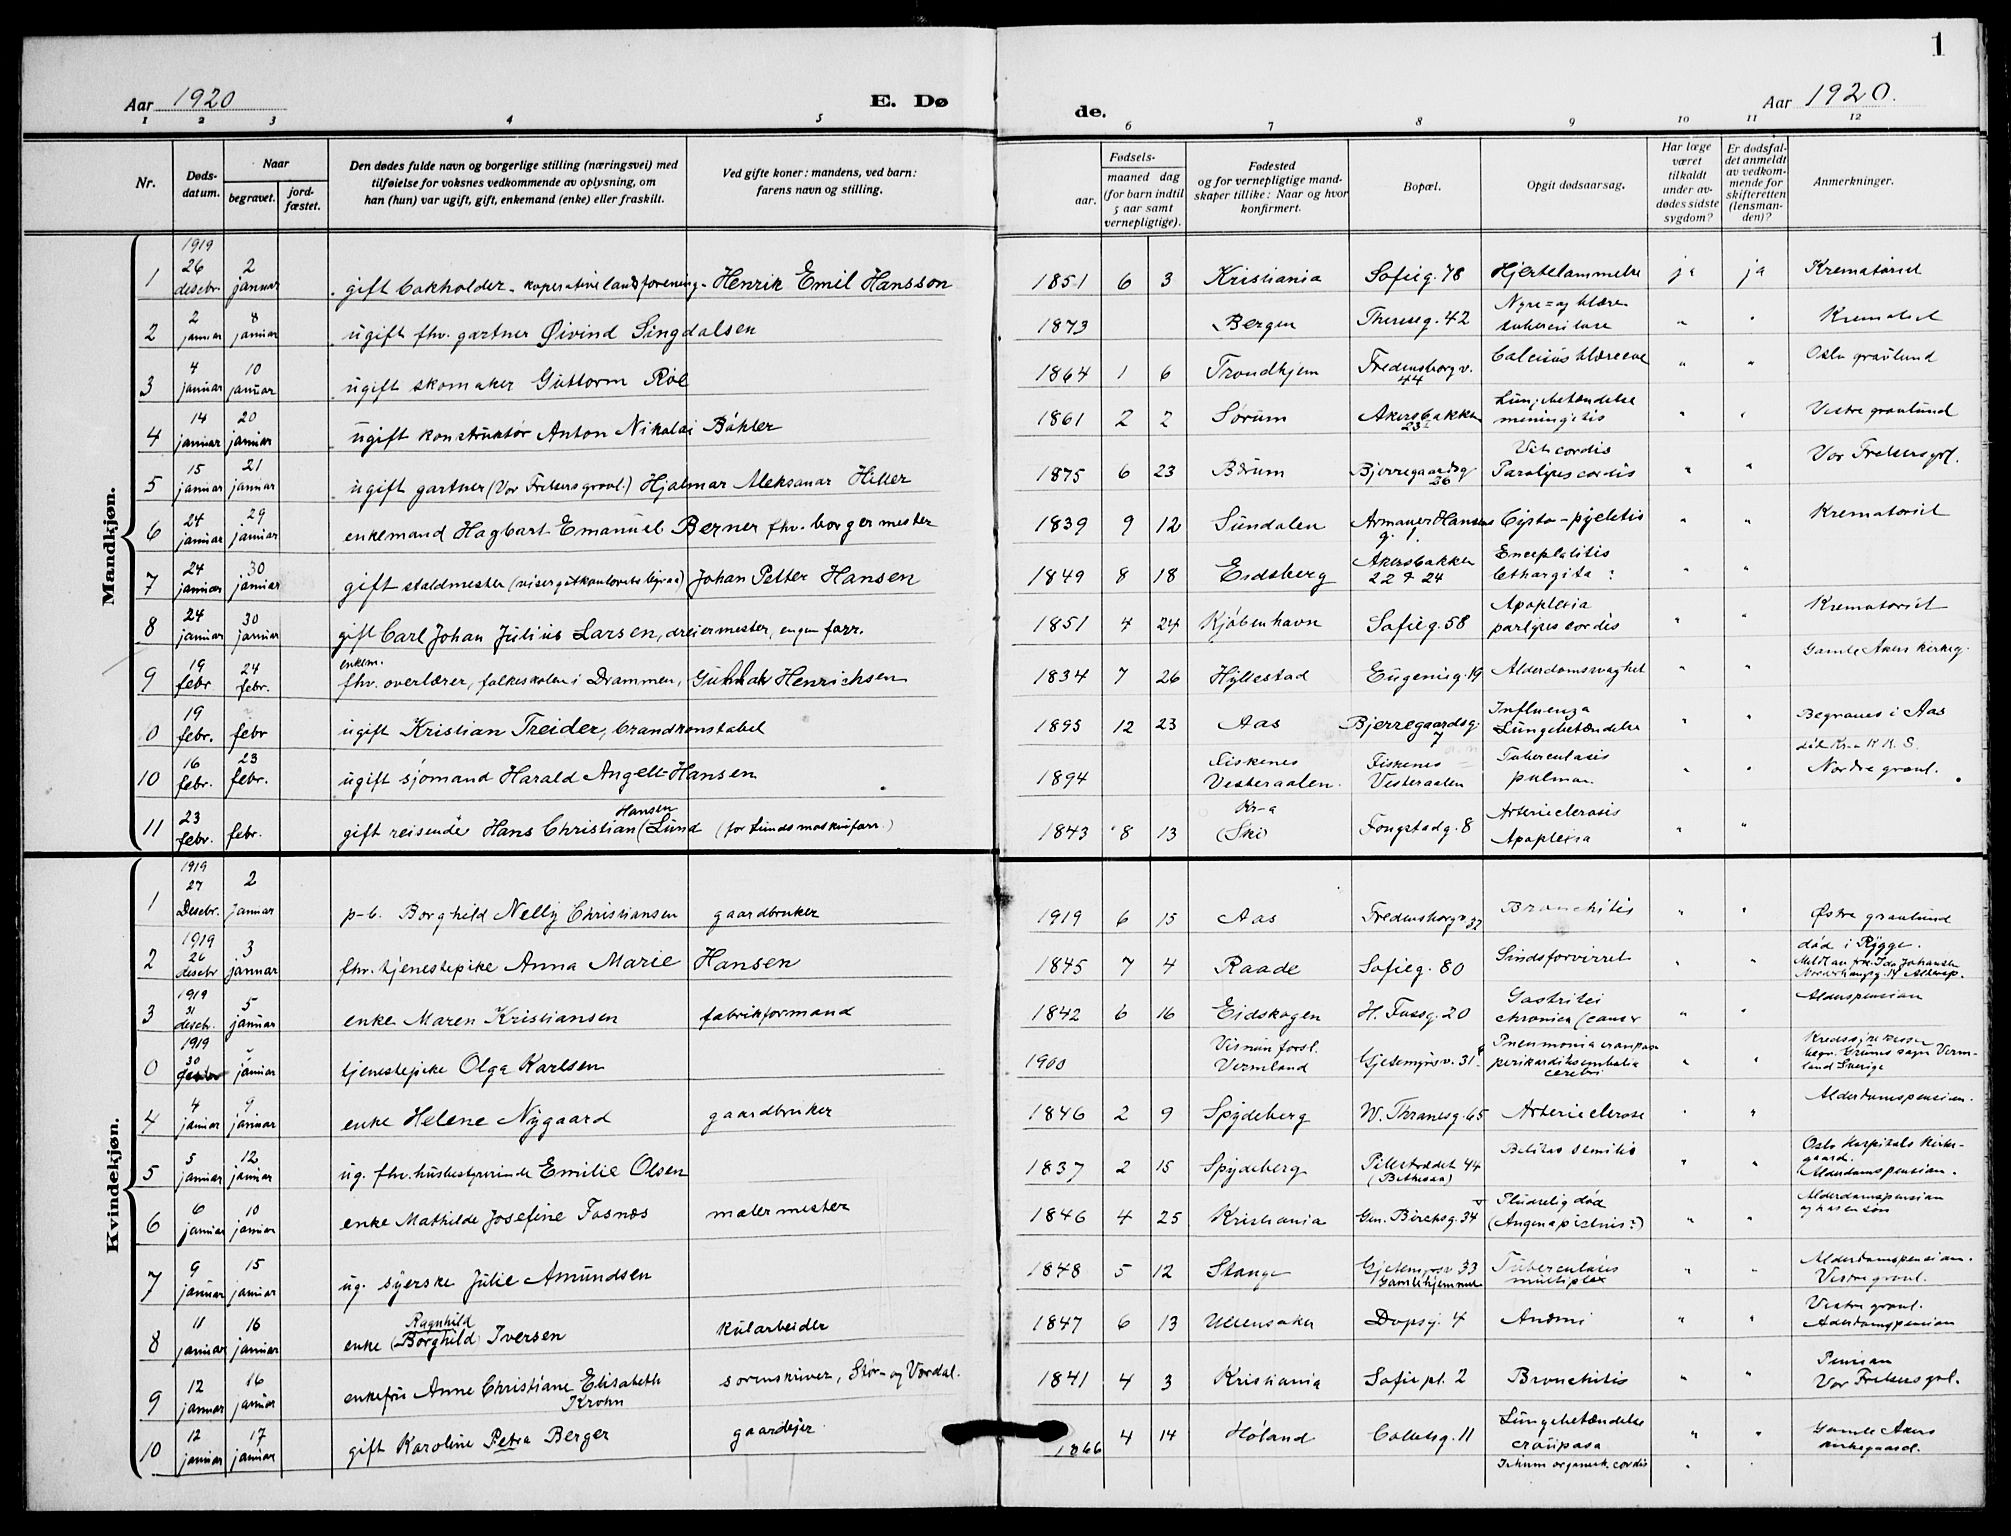 1
Aar 1920 E. Dø de. Aar 1920.
1 2 3 4 5 6 7 8 9 10 11 12
Nr. Døds-datum. Naar begravet. jord-fæstet. Den dødes fulde navn og borgerlige stilling (næringsvei) med tilføielse for voksnes vedkommende av oplysning, om han (hun) var ugift, gift, enkemand (enke) eller fraskilt. Ved gifte koner: mandens, ved barn: farens navn og stilling. Fødsels- aar. maaned dag (for barn indtil 5 aar samt vernepligtige). Fødested og for vernepligtige mandskaper tillike: Naar og hvor konfirmert. Bopæl. Opgit dødsaarsag. Har læge været tilkaldt under avdødes sidste sygdom? Er dødsfaldet anmeldt av vedkommende for skifteretten (lensmanden)? Anmerkninger.
Mandkjøn.
1 1919 26 desebr. 2 januar gift bokholder - koperative landsforening - Henrik Emil Hansson 1851 6 3 Kristiania Sofieg. 78 Hjertelammelse ja ja Krematoriet
2 2 januar 8 januar ugift fhv. gartner Øivind Singdalsen 1873 Bergen Theresg. 42 Nyre= og blære tuberculose " " Krematoriet
3 4 januar 10 januar ugift skomaker Guttorm Røe 1864 1 6 Trondhjem Fredensborgv. 44 " " Oslo gravlund
4 14 januar 20 januar ugift konstruktør Anton Nikolai Bøhler 1861 2 2 Sørum Akersbakken 23 Lungebetændelse meningitis " " Vestre gravlund
5 15 januar 21 januar ugift gartner (Vor Frelsers gravl.) Hjalmar Aleksanar Hiller 1875 6 23 Bærum Bjerregaardsg 26 Vit. cordis Paralyses cordis " " Vor Frelsers grl.
6 24 januar 29 januar enkemand Hagbart Emanuel Berner fhv. borgermester 1839 9 12 Sundalen Armauer Hansens g. 1 Cysto-pyeletis " " Krematoriet
7 24 januar 30 januar gift staldmester Johan Petter Hansen 1849 8 18 Eidsberg Akersbakken 22 & 24 Encephalitis lethargica ? " "
8 24 januar 30 januar gift Carl Johan Julius Larsen, dreiermester, egen forr. 1851 4 24 Kjøbenhavn Sofieg. 58 Apoplexia paralyses cordis " Krematoriet
9 19 febr 24 febr. enkem. fhv. overlærer, folkeskolen i Drammen, Henrichsen 1834 7 26 Hyllestad Eugenieg. 19 Alderdomssvaghet " " Gamle Akers kirkeg.
0 19 febr. febr ugift Kristian Treider, brandkonstabel 1895 12 23 Aas Bjerregaardsg. 7 Influenza Lungebetændelse " " Begraves i Aas
10 16 febr. 23 febr. ugift sjømand Harald Angelt-Hansen 1894 Fiskenes Vesteraalen. Fiskenes Vesteraalen Tuberculosis pulman. " død Kr.a K.K.S. Nordre gravl.
11 23 febr. febr. gift reisende Hans Christian Hansen (Lund (for Lunds maskinforr.) 1843 8 13 Kr-a (Ski) Fougstadg. 8 Arterieclerosis Apoplexia " "
Kvindekjøn.
1 1919 27 Desebr. 2 januar p-b. Borghild Nelly Christiansen gaardbruker 1919 6 15 Aas Fredensborgv 32 Bronchitis " " Østre gravlund
2 1919 26 desebr 3 januar fhv. tjenestepike Anna Marie Hansen 1845 7 4 Raade Sofieg. 80 Sindsforvirret " " død i Rygge. Meldt av frk. Ida Johansen
3 1919 31 desebr. 5 januar enke Maren Kristiansen fabrikformand 1842 6 16 Eidskogen H. Fossg. 20 Gastritei chronica (cancer " " Alderspension
0 1919 30 januar tjenestepike Olga Karlsen 1900 Visnum forsl. Vermland Gjetemyrsv. 31 Pneumonia croupøsa cerebri " " Grums sogn Vermland Sverige
4 4 januar 9 januar enke Helene Nygaard gaardbruker 1846 2 9 Spydeberg W. Thranesg. 65 Arterieclerose " " Alderdomspension.
5 5 januar 12 januar ug. fhv. husbestyrerinde Emilie Olsen 1837 2 15 Spydeberg Pilestrædet 44 (Bethesaa) senilis " " Oslo Hospitals kirkegaard. Alderdomspension.
6 6 januar 10 januar enke Mathilde Josefine Fosnæs malermester 1846 4 25 Kristiania Gen. Birchsg. 34 Pludselig død (Angina pictoris?) " " Alderdomspension og has en søn
7 9 januar 15 januar ug. syerske Julie Amundsen 1848 5 12 Stange Gjetemyrsv 33 Gamlehjemmet Tuberculosis multiplex " " Alderdomspension. Vestre gravl.
8 11 januar 16 januar enke Ragnhild (Borghild) Iversen kularbeider 1847 6 13 Ullensaker Dopsg. 4 Anæmi " " Vestre gravl. Alderdomspension
9 12 januar 16 januar enkefru Anne Christiane Elisabeth Krohn sorenskriver, Stør- og Værdal. 1841 4 3 Kristiania Sofie pl. 2 Bronchitis " " Pension Vor Frelsers grl.
10 12 januar 17 januar gift Karoline Petra Berger gaardejer 1866 4 14 Høland Colletsg. 11 Lungebetændelse croupøsa organisk cordis " " Gamle Akers kirkegaard.